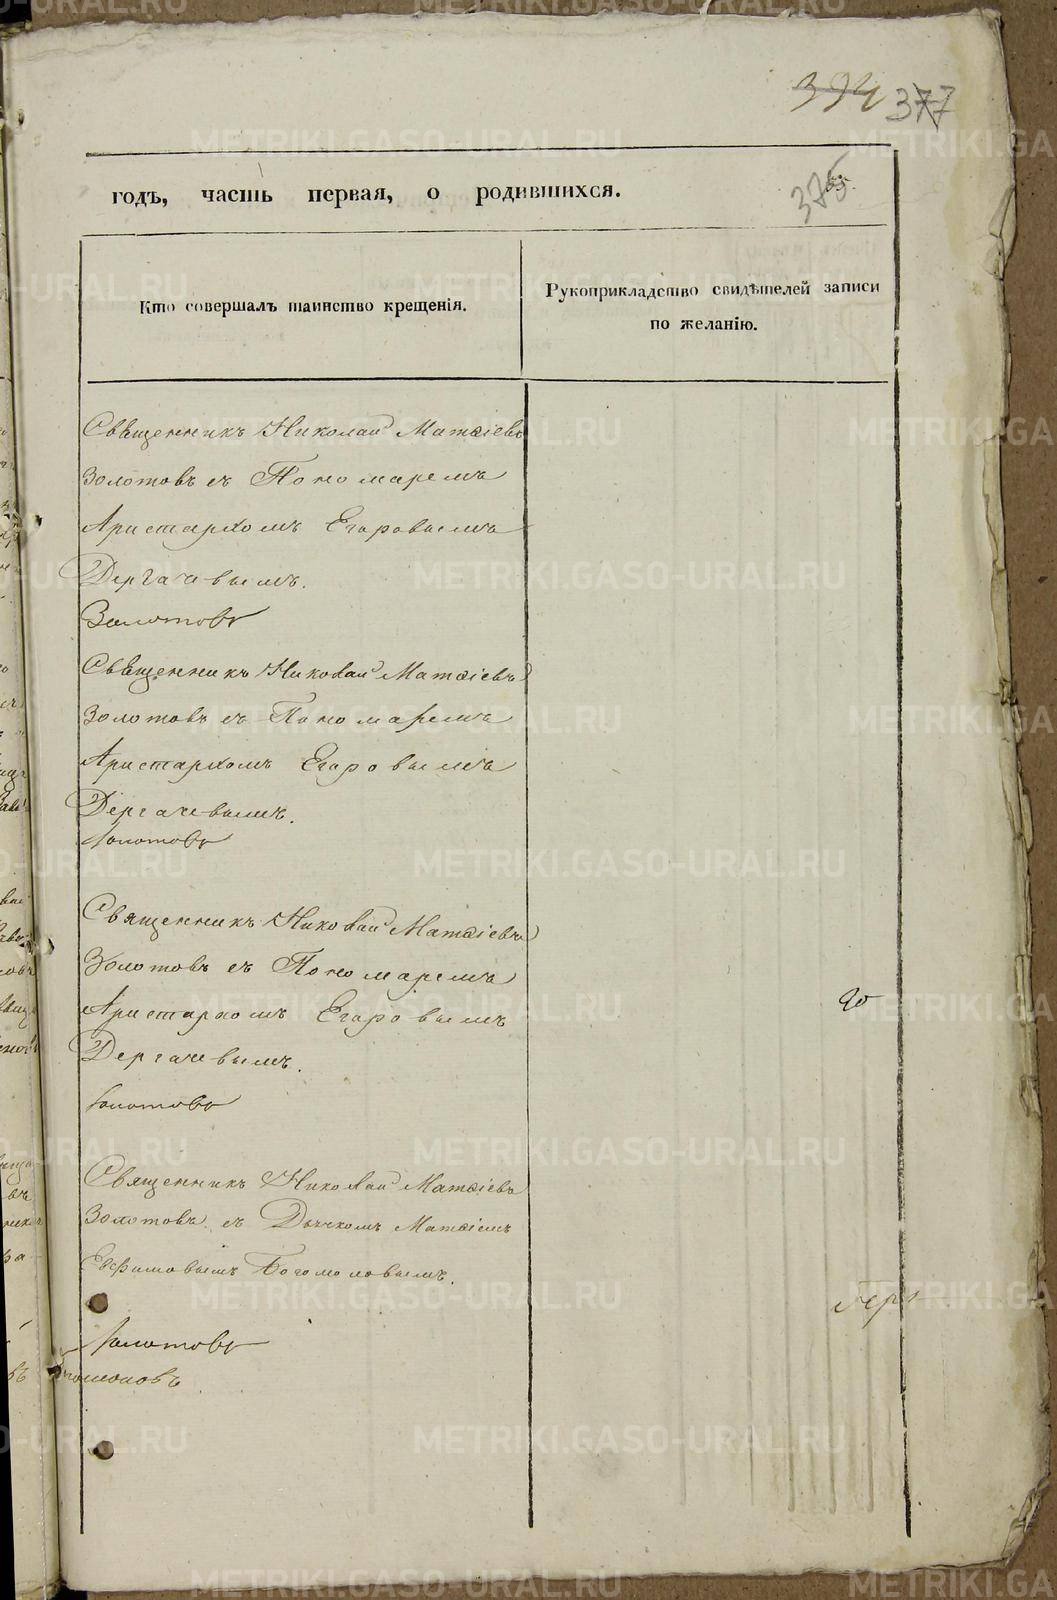 394 377
375
годъ, часть первая, о родившихся.
Кто совершалъ таинство крещенія.
Рукоприкладство свидѣтелей записи
по желанію.
Священникъ Николай Матѳіевъ
Золотовъ съ Пономаремъ
Аристархомъ Егоровымъ
Дергачевымъ.
Золотовъ
Священникъ Николай Матѳіевъ
Золотовъ съ Пономаремъ
Аристархомъ Егоровымъ
Дергачевымъ.
Золотовъ
Священникъ Николай Матѳіевъ
Золотовъ съ Пономаремъ
Аристархомъ Егоровымъ
Дергачевымъ.
Золотовъ
Священникъ Николай Матѳіевъ
Золотовъ съ Дьячкомъ Матѳіемъ
Евфимовымъ Богомоловымъ.
Золотовъ
METRIKI.GASO-URAL.RU